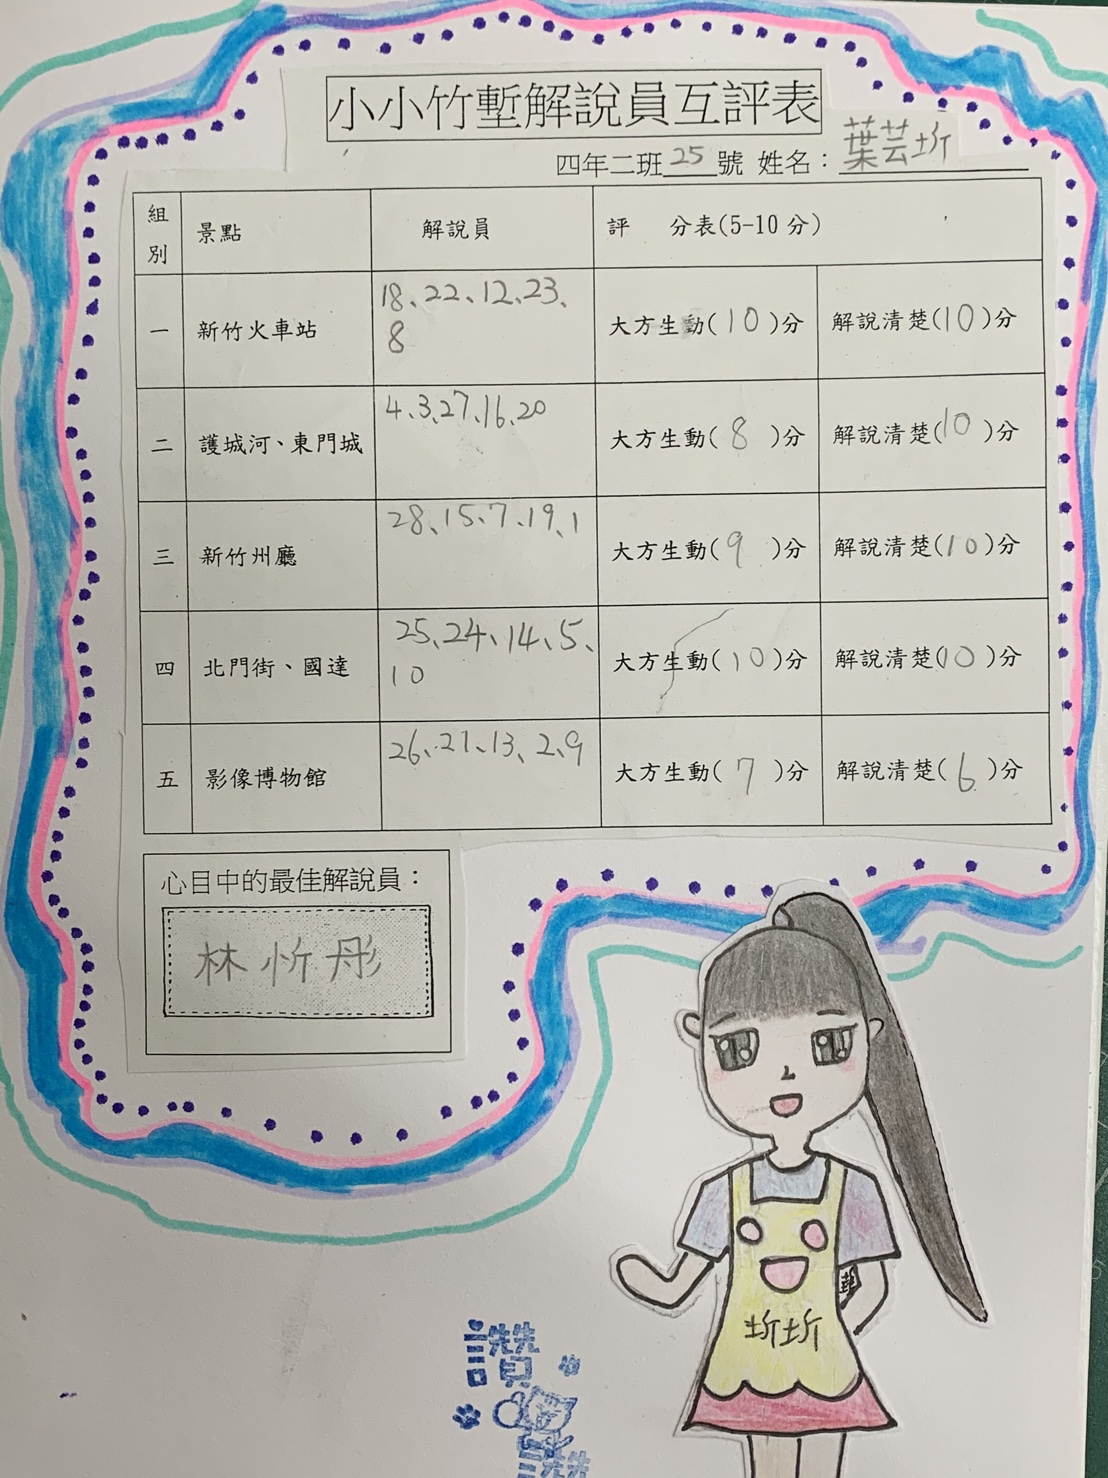 小小竹塹解說員互評表
四年二班25號 姓名：葉芸圻
組別 景點 解說員 評 分表(5-10分)
一 新竹火車站 18、22、12、23、8 大方生動(10)分 解說清楚(10)分
二 護城河、東門城 4、3、27、16、20 大方生動(8)分 解說清楚(10)分
三 新竹州廳 28、15、7、19、1 大方生動(9)分 解說清楚(10)分
四 北門街、國達 25、24、14、5、10 大方生動(10)分 解說清楚(10)分
五 影像博物館 26、21、13、2、9 大方生動(7)分 解說清楚(6)分
心目中的最佳解說員：
林忻彤
圻圻
讚
讚